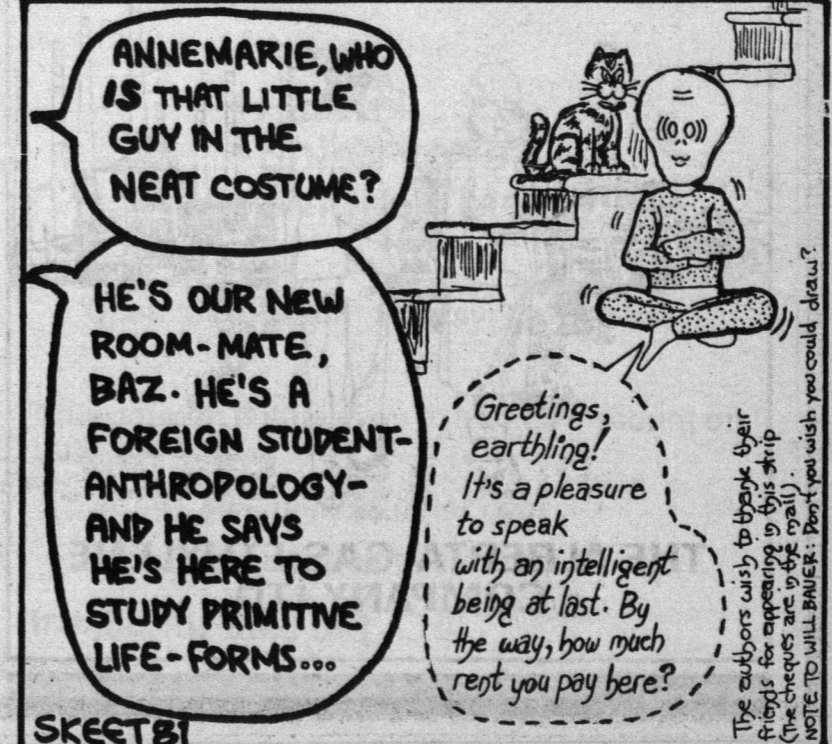 ANNEMARIE, WHO
IS THAT LITTLE
GUY IN THE
NEAT COSTUME?
HE'S OUR NEW
ROOM-MATE,
BAZ. HE'S A
FOREIGN STUDENT-
ANTHROPOLOGY-
AND HE SAYS
HE'S HERE TO
STUDY PRIMITIVE
LIFE-FORMS...
Greetings,
earthling!
It's a pleasure
to speak
with an intelligent
being at last. By
the way, how much
rent you pay here?
The authors wish to thank their
friends for appearing in this strip
(The cheques are in the mail).
NOTE TO WILL BAUER: Don't you wish you could draw?
SKEET81